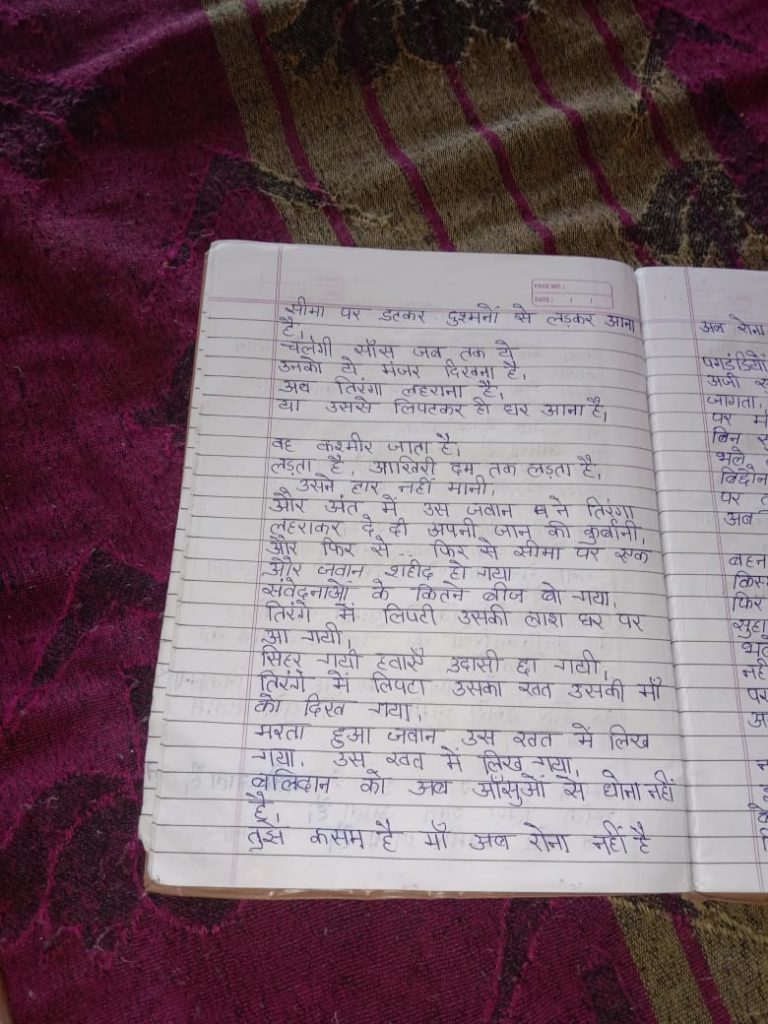 PAGE NO. :
DATE : / /
सीमा पर डटकर दुश्मनों से लड़कर आना
है,
चलेगी साँस जब तक ये
उनको ये मंजर दिखना है,
अब तिरंगा लहराना है,
या उससे लिपटकर ही घर आना है,
वह कश्मीर जाता है,
लड़ता है, आखिरी दम तक लड़ता है,
उसने हार नहीं मानी,
और अंत में उस जवान ने तिरंगा
लहराकर दे दी अपनी जान की कुर्बानी,
और फिर से .. फिर से सीमा पर एक
और जवान शहीद हो गया
संवेदनाओं के कितने बीज बो गया,
तिरंगे में लिपटी उसकी लाश घर पर
आ गयी,
सिहर गयी हवाएँ उदासी छा गयी,
तिरंगे में लिपटा उसका खत उसकी माँ
को दिख गया,
मरता हुआ जवान उस खत में लिख
गया, उस खत में लिख गया,
बलिदान को अब आँसुओं से धोना नहीं
है,
तुझे कसम है माँ अब रोना नहीं है
अब रोना
पगडंडियों
अजी
जागता,
पर
बिन
भले
पर
अब
बहन
फिर
सुहा
नहीं
पर